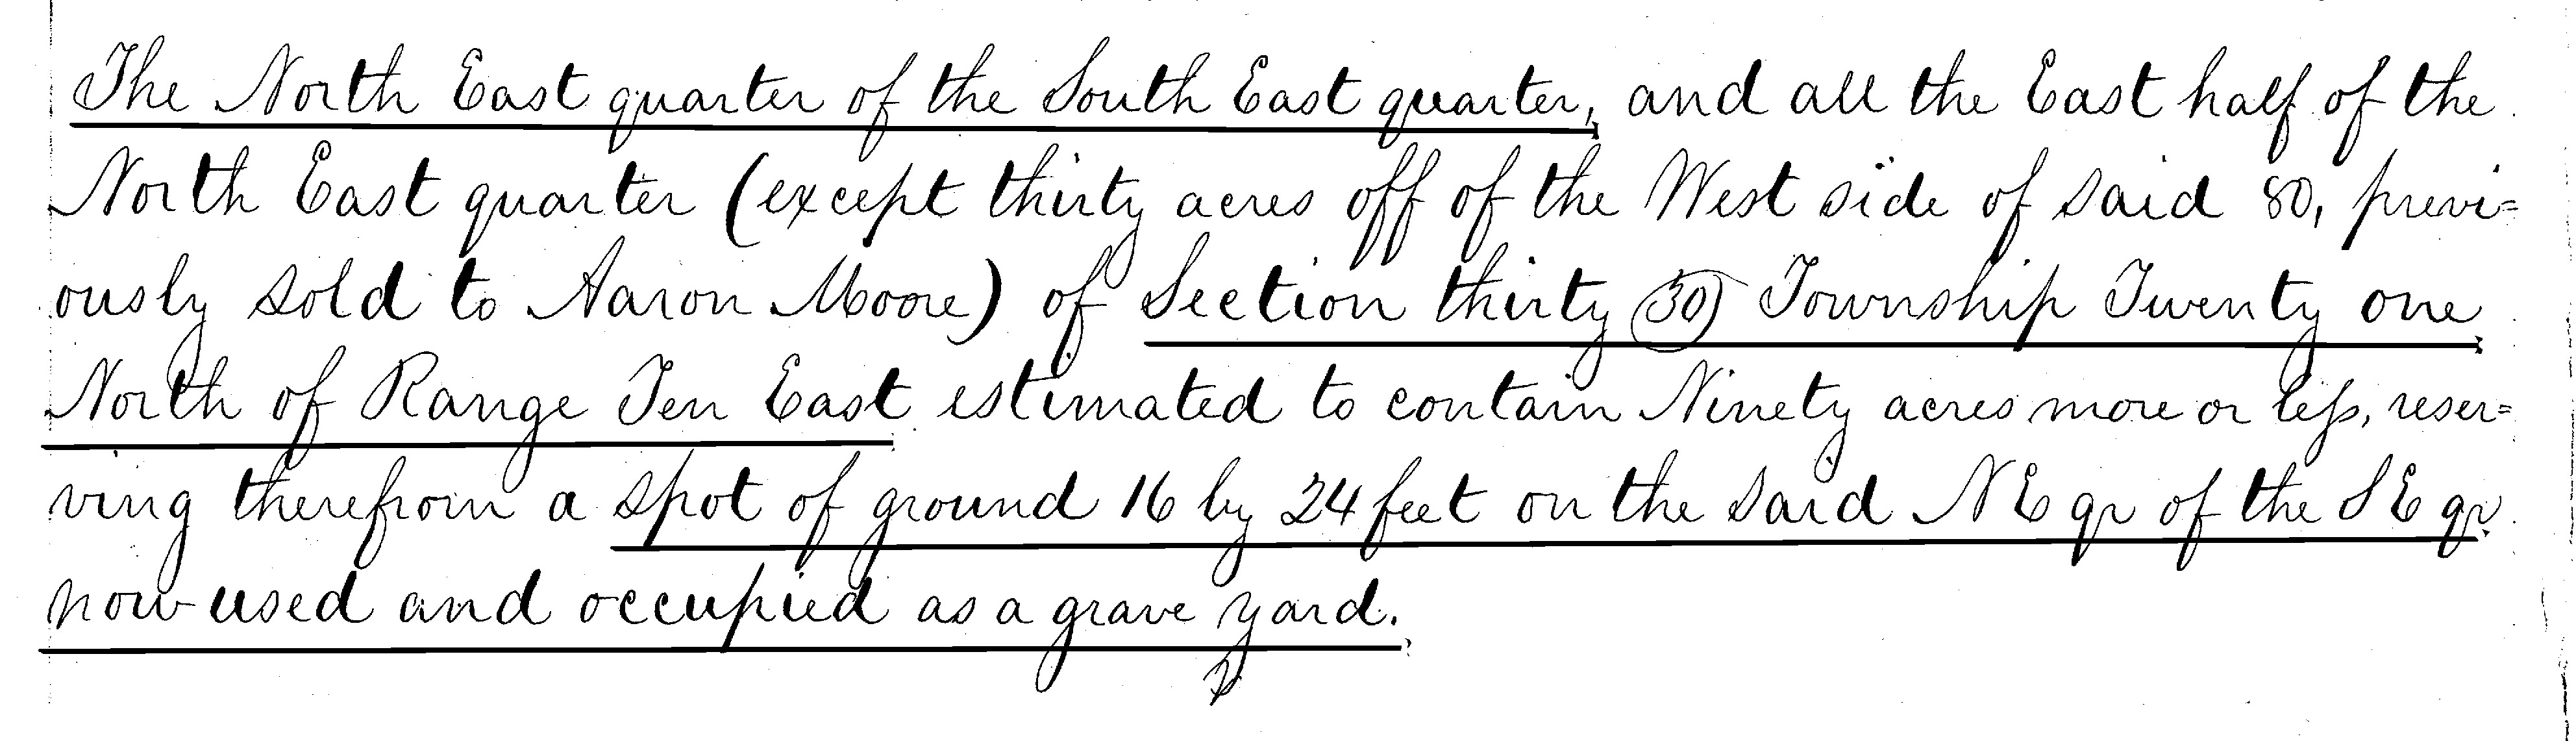 The North East quarter of the South East quarter, and all the East half of the
North East quarter (except thirty acres off of the West side of said 80, previ=
ously sold to Aaron Moore) of Section thirty (30) Township Twenty one
North of Range Ten East estimated to contain Ninety acres more or less, reser=
ving therefrom a spot of ground 16 by 24 feet on the said N E qr of the S E qr.
now used and occupied as a grave yard.